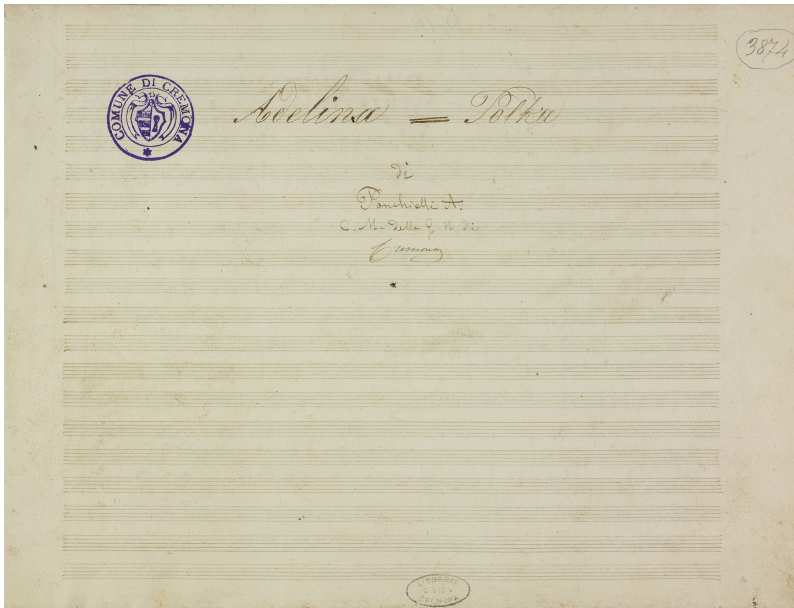 3874
COMUNE DI CREMONA
Adelina = Polka
di
Ponchielli A.
C. M. della G. N. di
Cremona
LIBRERIA
CIVICA
CREMONA